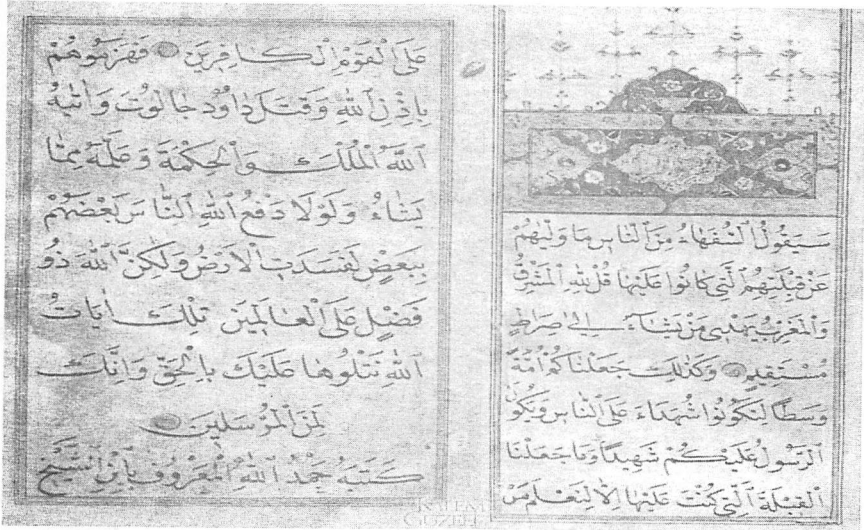 سَيَقُولُ ٱلسُّفَهَاءُ مِنَ ٱلنَّاسِ مَا وَلّٰيهُمْ
عَنْ قِبْلَتِهِمُ ٱلَّتِى كَانُوا عَلَيْهَا قُلْ لِلّٰهِ ٱلْمَشْرِقُ
وَٱلْمَغْرِبُ يَهْدِى مَنْ يَشَاءُ اِلٰى صِرَاطٍ
مُسْتَقِيمٍ وَكَذٰلِكَ جَعَلْنَاكُمْ اُمَّةً
وَسَطًا لِتَكُونُوا شُهَدَاءَ عَلَى ٱلنَّاسِ وَيَكُونَ
ٱلرَّسُولُ عَلَيْكُمْ شَهِيدًا وَمَا جَعَلْنَا
ٱلْقِبْلَةَ ٱلَّتِى كُنْتَ عَلَيْهَا اِلَّا لِنَعْلَمَ مَنْ
عَلَى ٱلْقَوْمِ ٱلْكَافِرِينَ فَهَزَمُوهُمْ
بِاِذْنِ ٱللّٰهِ وَقَتَلَ دَاوُدُ جَالُوتَ وَاٰتٰيهُ
ٱللّٰهُ ٱلْمُلْكَ وَٱلْحِكْمَةَ وَعَلَّمَهُ مِمَّا
يَشَاءُ وَلَوْلَا دَفْعُ ٱللّٰهِ ٱلنَّاسَ بَعْضَهُمْ
بِبَعْضٍ لَفَسَدَتِ ٱلْاَرْضُ وَلٰكِنَّ ٱللّٰهَ ذُو
فَضْلٍ عَلَى ٱلْعَالَمِينَ تِلْكَ اٰيَاتُ
ٱللّٰهِ نَتْلُوهَا عَلَيْكَ بِٱلْحَقِّ وَاِنَّكَ
لَمِنَ ٱلْمُرْسَلِينَ
كَتَبَهُ حَمْدُ ٱللّٰهِ ٱلْمَعْرُوفُ بِٱبْنِ ٱلشَّيْخِ